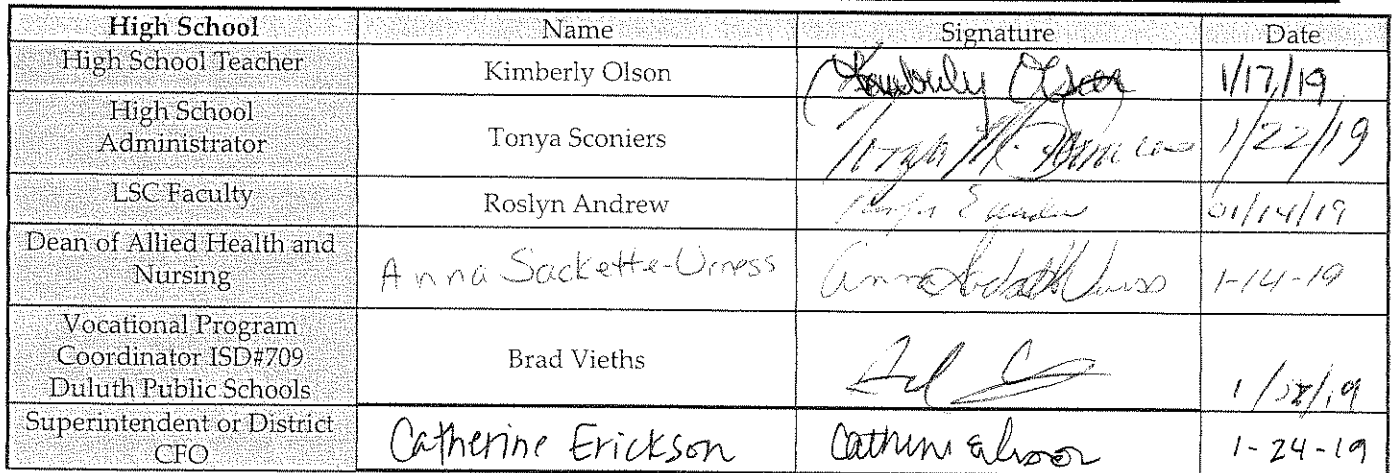 High School Name Signature Date
High School Teacher Kimberly Olson Kimberly Olson 1/17/19
High School
Administrator Tonya Sconiers Tonya M. Sconiers 1/22/19
LSC Faculty Roslyn Andrew 01/14/19
Dean of Allied Health and
Nursing Anna Sackette-Urness Anna Sackette Urness 1-14-19
Vocational Program
Coordinator ISD#709
Duluth Public Schools Brad Vieths
Superintendent or District
CFO Catherine Erickson Catherine Erickson 1-24-19